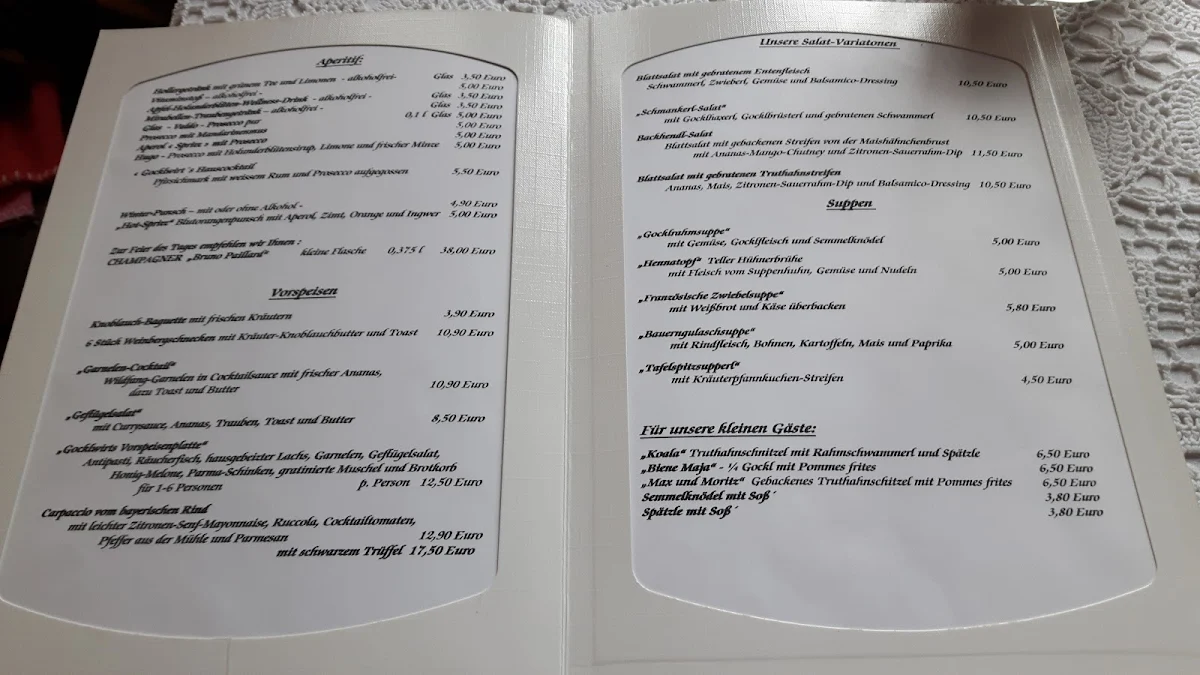 Aperitif:
Hollergetränk mit grünem Tee und Limonen - alkoholfrei- Glas 3,50 Euro
Vitaminstoß - alkoholfrei - 5,00 Euro
Apfel-Holunderblüten-Wellness-Drink - alkoholfrei - Glas 3,50 Euro
Mirabellen-Traubengetränk - alkoholfrei - Glas 3,50 Euro
Glas - Valdo - Prosecco pur 0,1 l Glas 5,00 Euro
Prosecco mit Mandarinenmus 5,00 Euro
Aperol « Spritz » mit Prosecco 5,00 Euro
Hugo - Prosecco mit Holunderblütensirup, Limone und frischer Minze 5,00 Euro
« Gocklwirt´s Hauscocktail
Pfirsichmark mit weissem Rum und Prosecco aufgegossen 5,50 Euro
Winter-Punsch – mit oder ohne Alkohol - 4,90 Euro
„Hot-Spritz" Blutorangenpunsch mit Aperol, Zimt, Orange und Ingwer 5,00 Euro
Zur Feier des Tages empfehlen wir Ihnen :
CHAMPAGNER „Bruno Paillard" kleine Flasche 0,375 l 38,00 Euro
Vorspeisen
Knoblauch-Baguette mit frischen Kräutern 3,90 Euro
6 Stück Weinbergschnecken mit Kräuter-Knoblauchbutter und Toast 10,90 Euro
„Garnelen-Cocktail"
Wildfang-Garnelen in Cocktailsauce mit frischer Ananas,
dazu Toast und Butter 10,90 Euro
„Geflügelsalat"
mit Currysauce, Ananas, Trauben, Toast und Butter 8,50 Euro
„Gocklwirts Vorspeisenplatte"
Antipasti, Räucherfisch, hausgebeizter Lachs, Garnelen, Geflügelsalat,
Honig-Melone, Parma-Schinken, gratinierte Muschel und Brotkorb
für 1-6 Personen p. Person 12,50 Euro
Carpaccio vom bayerischen Rind
mit leichter Zitronen-Senf-Mayonnaise, Ruccola, Cocktailtomaten,
Pfeffer aus der Mühle und Parmesan 12,90 Euro
mit schwarzem Trüffel 17,50 Euro
Unsere Salat-Variatonen
Blattsalat mit gebratenem Entenfleisch
Schwammerl, Zwieberl, Gemüse und Balsamico-Dressing 10,50 Euro
„Schmankerl-Salat"
mit Gocklhaxerl, Gocklbrüsterl und gebratenen Schwammerl 10,50 Euro
Backhendl-Salat
Blattsalat mit gebackenen Streifen von der Maishähnchenbrust
mit Ananas-Mango-Chutney und Zitronen-Sauerrahm-Dip 11,50 Euro
Blattsalat mit gebratenen Truthahnstreifen
Ananas, Mais, Zitronen-Sauerrahm-Dip und Balsamico-Dressing 10,50 Euro
Suppen
„Gocklrahmsuppe"
mit Gemüse, Gocklfleisch und Semmelknödel 5,00 Euro
„Hennatopf" Teller Hühnerbrühe
mit Fleisch vom Suppenhuhn, Gemüse und Nudeln 5,00 Euro
„Französische Zwiebelsuppe"
mit Weißbrot und Käse überbacken 5,80 Euro
„Bauerngulaschsuppe"
mit Rindfleisch, Bohnen, Kartoffeln, Mais und Paprika 5,00 Euro
„Tafelspitzsupperl"
mit Kräuterpfannkuchen-Streifen 4,50 Euro
Für unsere kleinen Gäste:
„Koala" Truthahnschnitzel mit Rahmschwammerl und Spätzle 6,50 Euro
„Biene Maja" - ¼ Gockl mit Pommes frites 6,50 Euro
„Max und Moritz" Gebackenes Truthahnschitzel mit Pommes frites 6,50 Euro
Semmelknödel mit Soß´ 3,80 Euro
Spätzle mit Soß´ 3,80 Euro